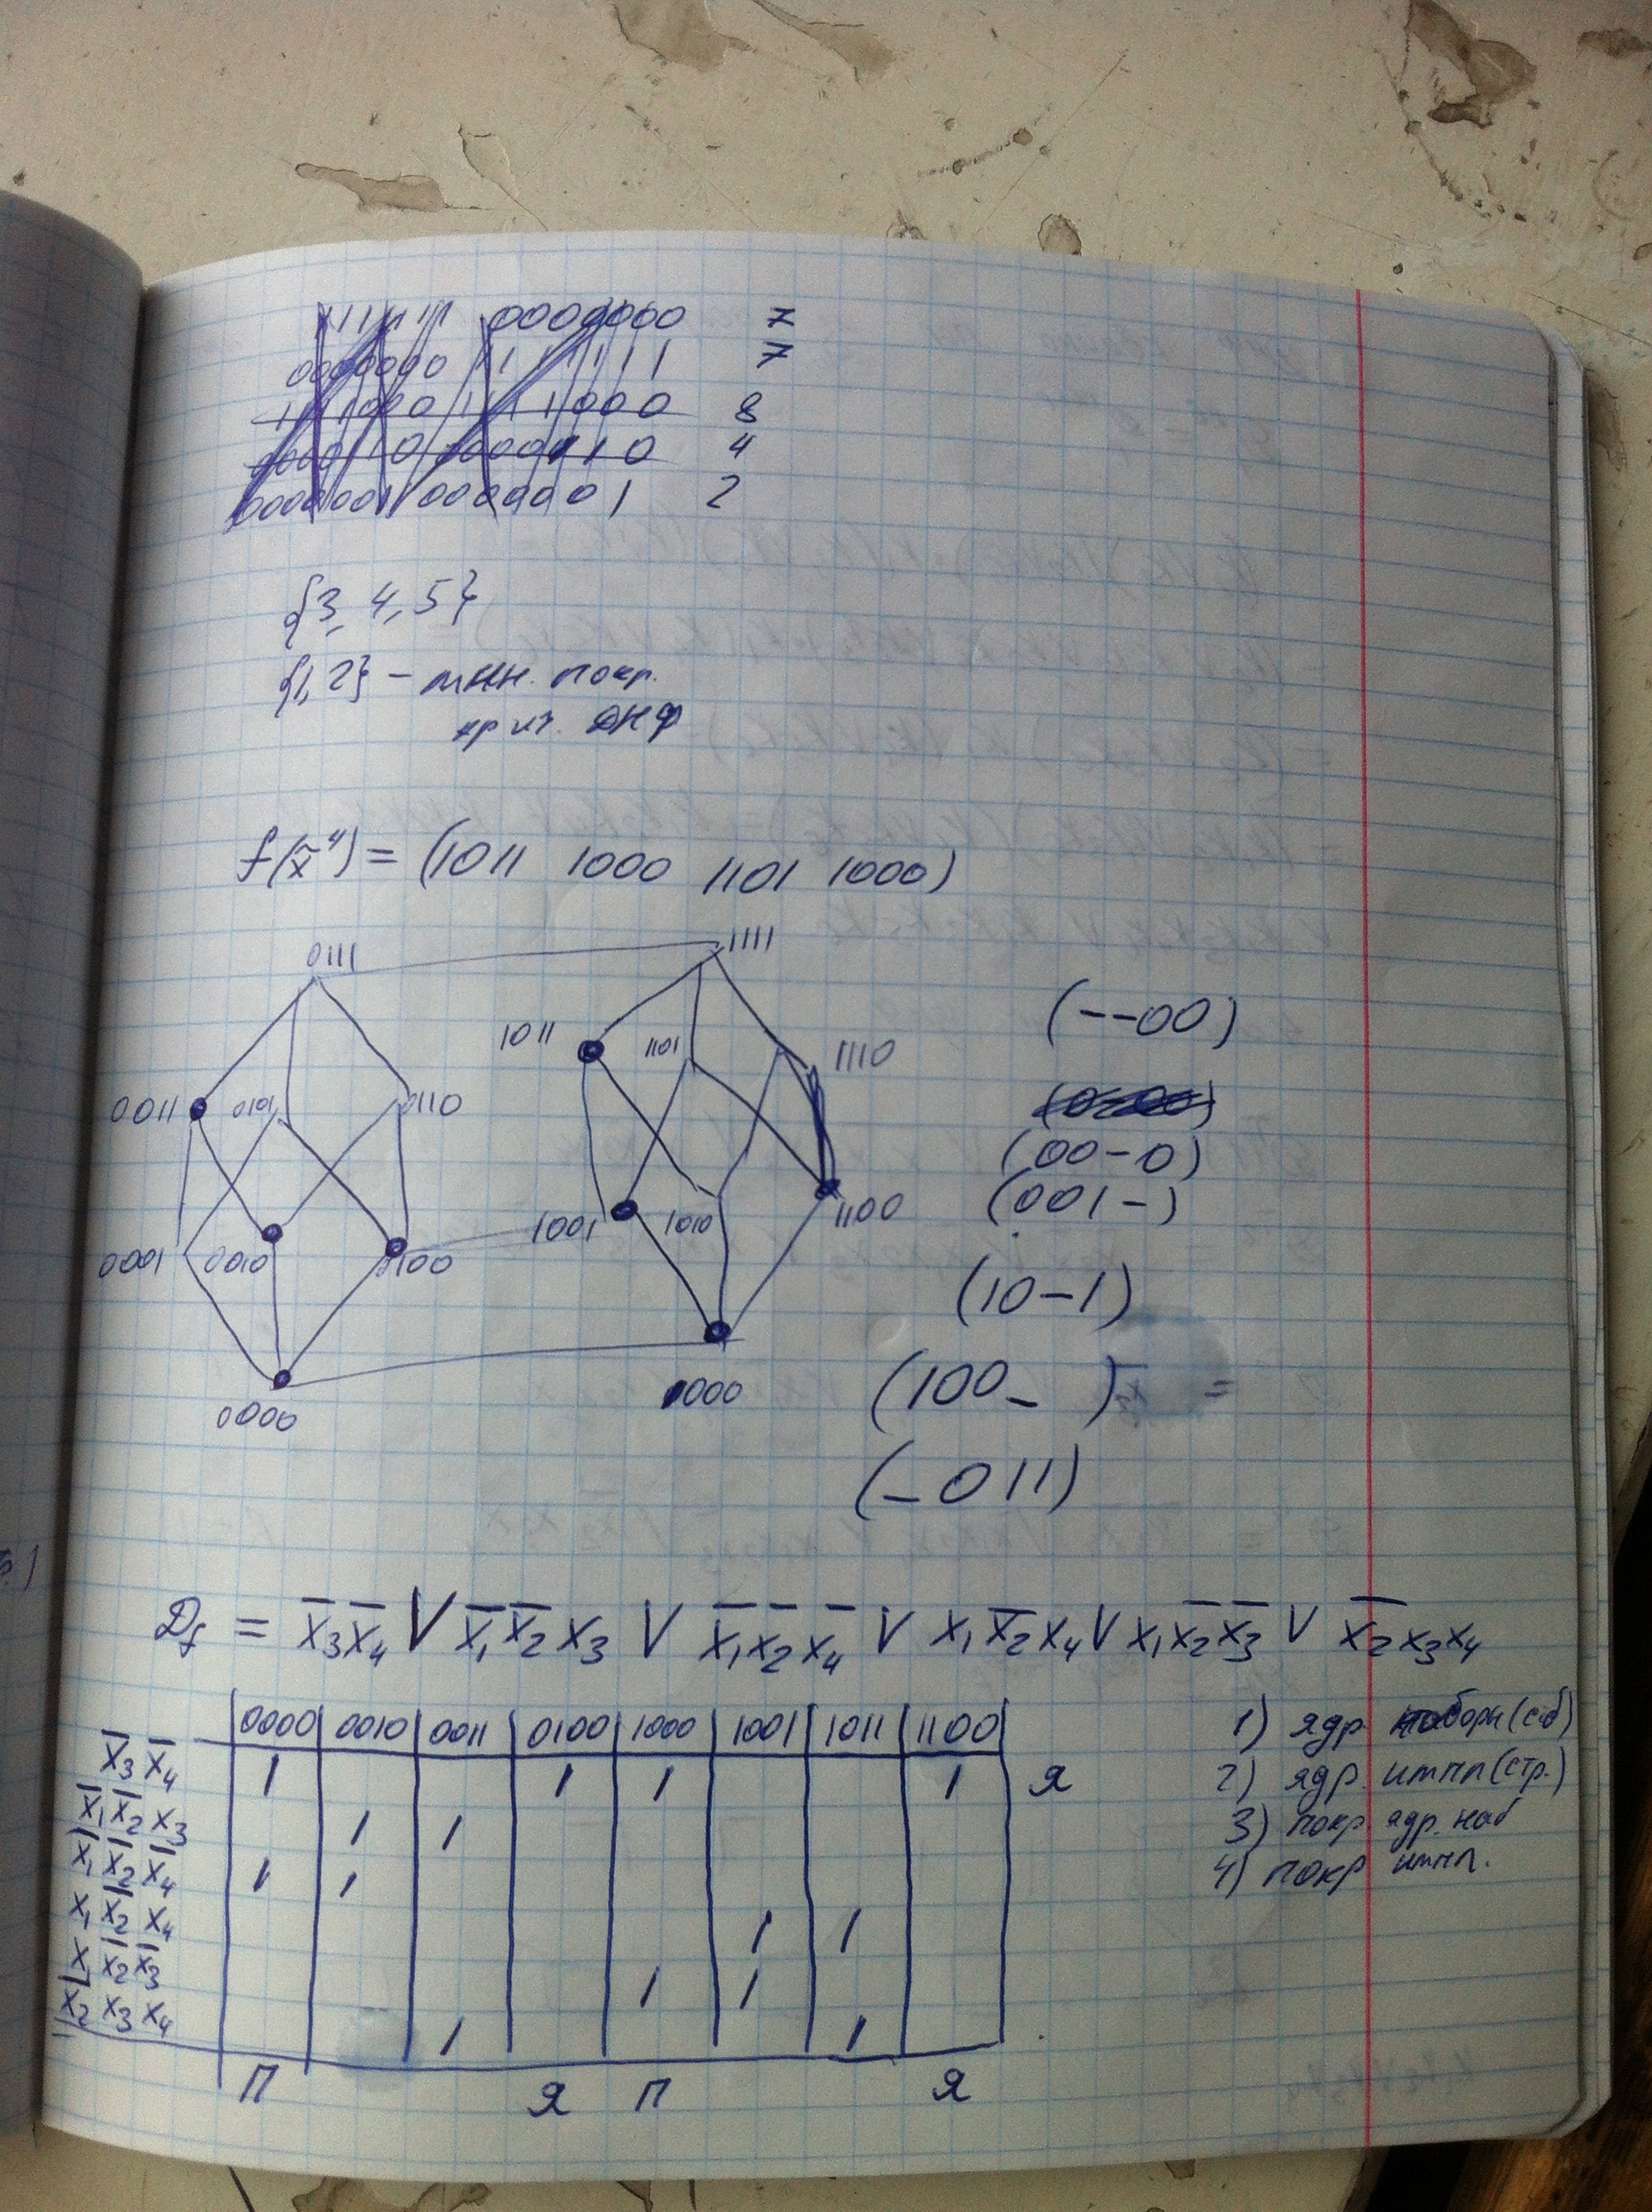 1111111 0000000 7
0000000 1111111 7
1111000 1111000 8
0000110 0000110 4
0000001 0000001 2
{3, 4, 5}
{1, 2} – мин. покр.
ДНФ
f(x̃⁴) = (1011 1000 1101 1000)
0111 1111
1011 1101 1110
0011 0101 0110
1001 1010 1100
0001 0010 0100
1000
0000
(--00)
(00-0)
(001-)
(10-1)
(100-) =
(-011)
D_f = x̅₃x̅₄ V x̅₁x̅₂x₃ V x̅₁x̅₂x̅₄ V x₁x̅₂x₄ V x₁x̅₂x̅₃ V x̅₂x₃x₄
0000 0010 0011 0100 1000 1001 1011 1100
x̅₃x̅₄ 1 1 1 1 Я
x̅₁x̅₂x₃ 1 1
x̅₁x̅₂x̅₄ 1 1
x₁x̅₂x₄ 1 1
x₁x̅₂x̅₃ 1 1
x̅₂x₃x₄ 1 1
П Я П Я
1) ядр наборы (стб)
2) ядр. импл (стр.)
3) покр ядр. наб
4) покр импл.